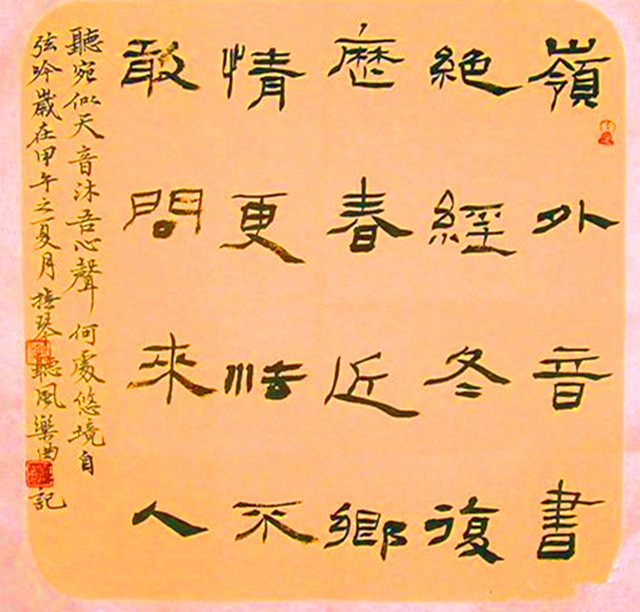 嶺外音書
絕經冬復
厯春近鄉
情更怯不
敢問來人
聽宛似天音沐吾心聲何處悠境自
弦吟歲在甲午之夏月撫琴聽風樂曲記